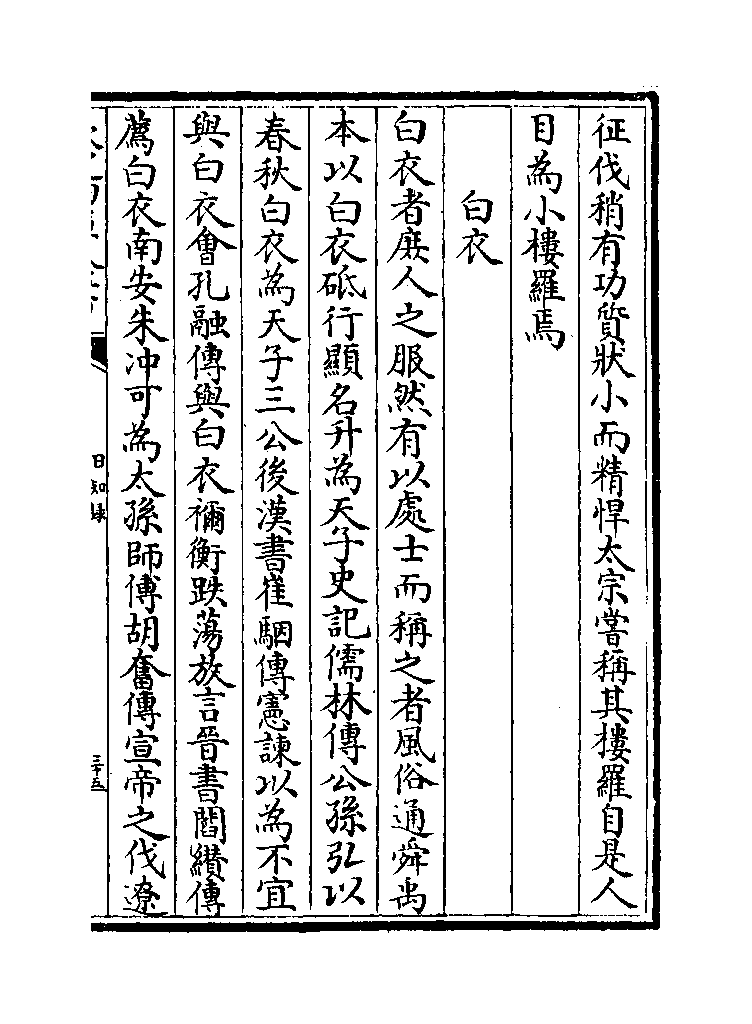 征伐稍有功質狀小而精悍太宗嘗稱其樓羅自是人
目為小樓羅焉
白衣
白衣者庶人之服然有以處士而稱之者風俗通舜禹
本以白衣砥行顯名升為天子史記儒林傳公孫弘以
春秋白衣為天子三公後漢書崔駰傳憲諫以為不宜
與白衣會孔融傳與白衣禰衡跌蕩放言晉書閻纘傳
薦白衣南安朱冲可為太孫師傅胡奮傳宣帝之伐遼
日知録
三十五